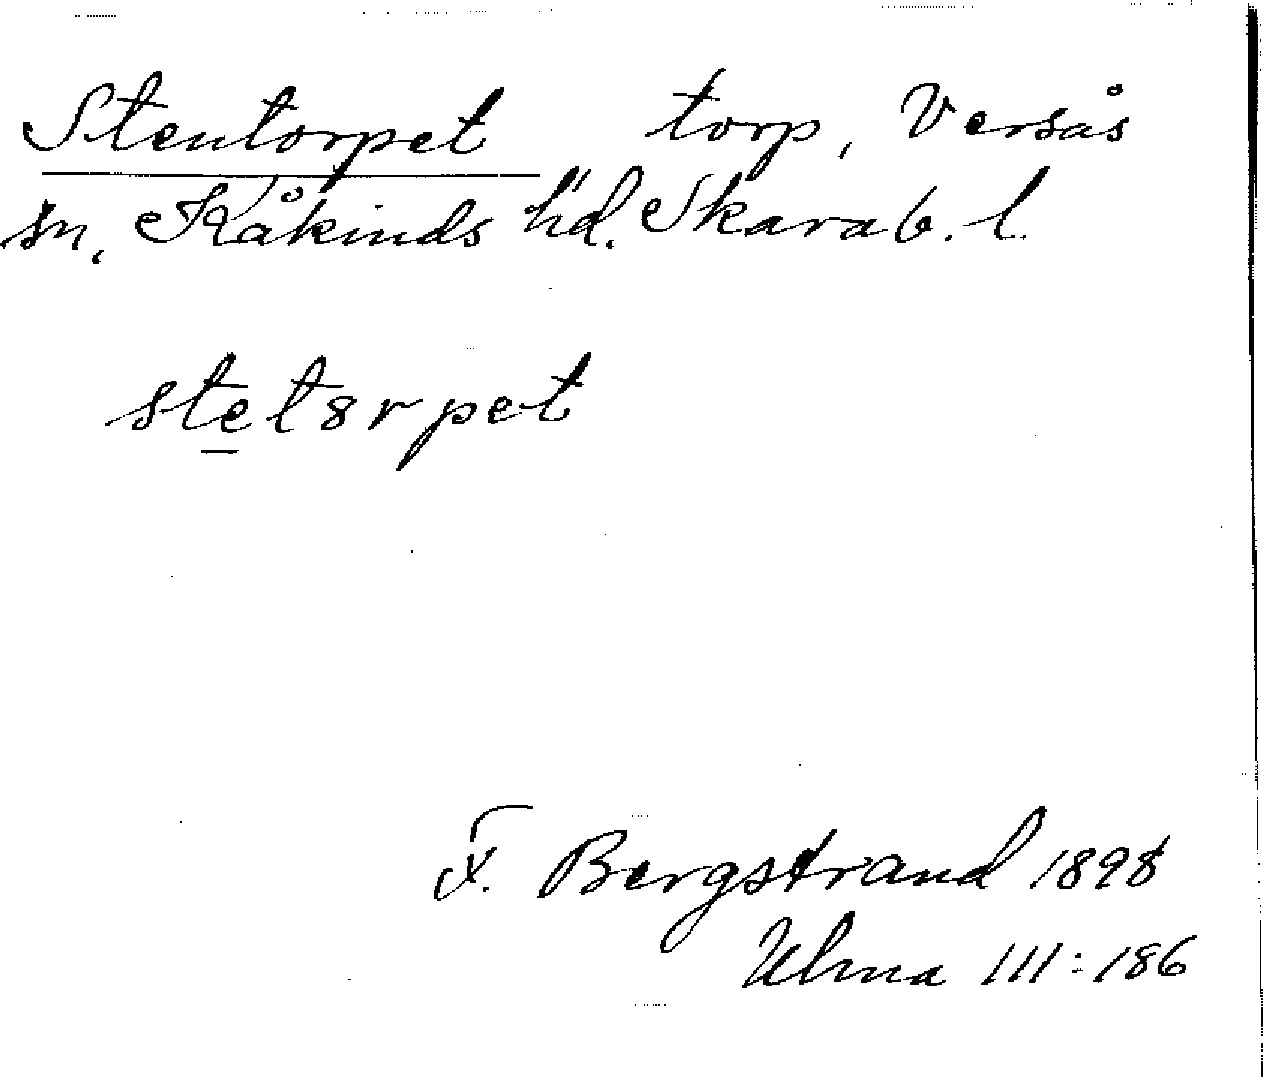 Stentorpet torp, Versås
sn, Kåkinds hd. Skarab. l.
stet8rpet
F. Bergstrand 1898
Ulma III:186